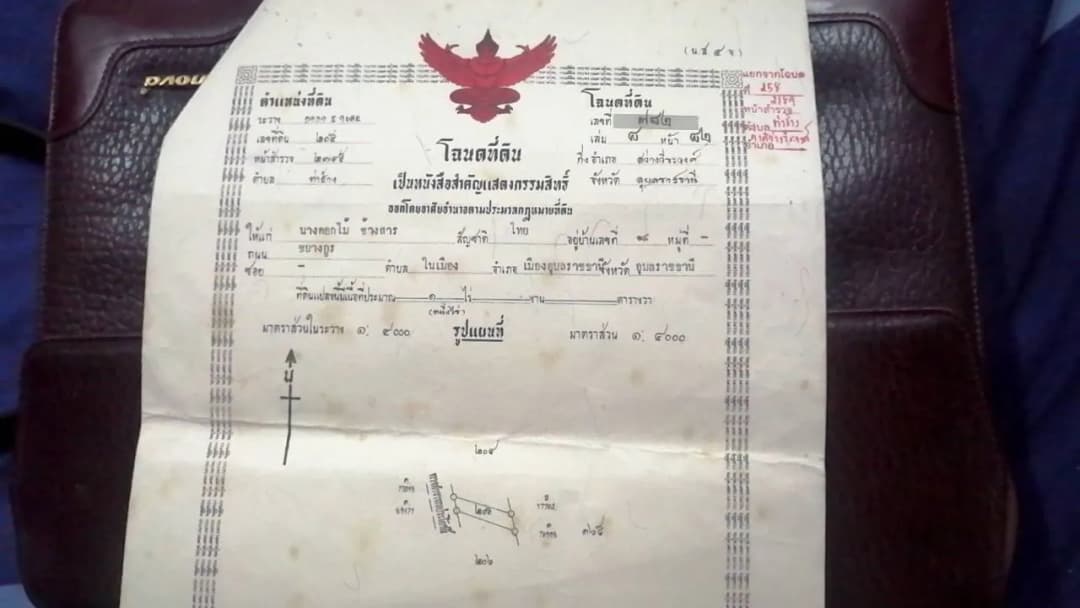 (น.ส.๔ จ)
ตำแหน่งที่ดิน
ระวาง
เลขที่ดิน ๒๐๕
หน้าสำรวจ ๒๓๙๕
ตำบล ท่าช้าง
โฉนดที่ดิน
เลขที่ ๗๘๒
เล่ม ๘ หน้า ๘๒
กิ่งอำเภอ สว่างวีระวงศ์
จังหวัด อุบลราชธานี
แยกจากโฉนด
ที่ 258
หน้าสำรวจ
ตำบล ท่าช้าง
อำเภอ
โฉนดที่ดิน
เป็นหนังสือสำคัญแสดงกรรมสิทธิ์
ออกโดยอาศัยอำนาจตามประมวลกฎหมายที่ดิน
ให้แก่ นางดอกไม้ ช้างสาร สัญชาติ ไทย อยู่บ้านเลขที่ หมู่ที่ –
ถนน ชยางกูร
ซอย – ตำบล ในเมือง อำเภอ เมืองอุบลราชธานี จังหวัด อุบลราชธานี
ที่ดินแปลงนี้มีเนื้อที่ประมาณ ๑ ไร่ งาน ตารางวา
(หนึ่งไร่)
มาตราส่วนในระวาง ๑: ๔๐๐๐ รูปแผนที่ มาตราส่วน ๑: ๔๐๐๐
น
๒๐๔
๒๐๕
๓๖๕
๒๐๖